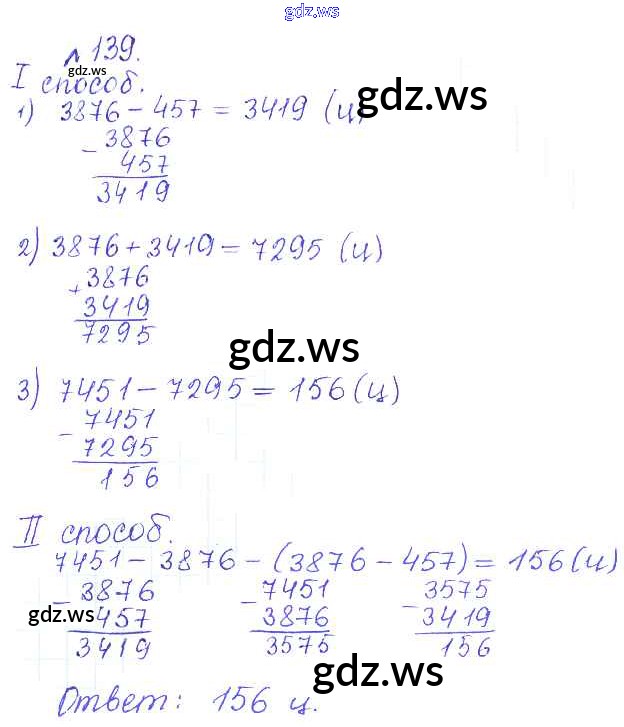 gdz.ws
№ 139.
gdz.ws
I способ.
1) 3876 - 457 = 3419 (ц)
gdz.ws
- 3876
457
3419
2) 3876 + 3419 = 7295 (ц)
+ 3876
3419
7295
gdz.ws
3) 7451 - 7295 = 156 (ц)
- 7451
7295
156
II способ.
7451 - 3876 - (3876 - 457) = 156 (ц)
- 3876 - 7451 - 3575
gdz.ws 457 3876 3419
3419 3575 156
gdz.ws
Ответ: 156 ц.